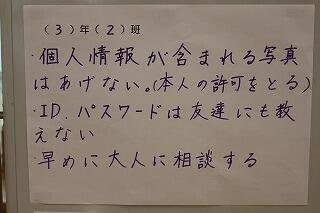 (3)年(2)班
・個人情報が含まれる写真
はあげない。(本人の許可をとる)
・ID、パスワードは友達にも教
えない
・早めに大人に相談する